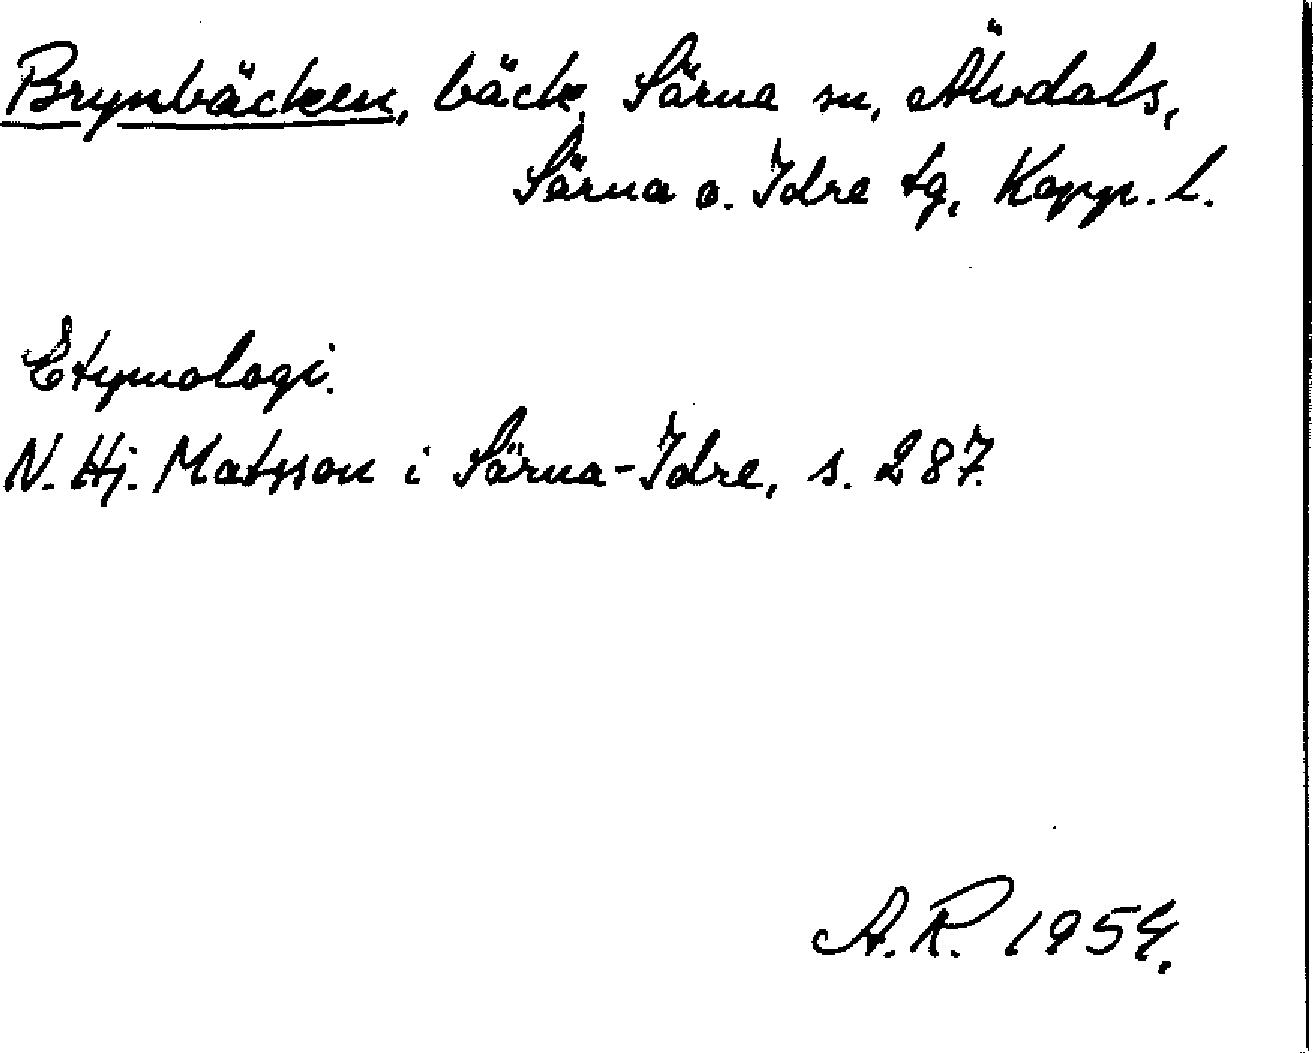 Brynbäcken, bäck, Särna sn, Älvdals,
Särna o. Idre tg, Kopp. l.
Etymologi.
N. Hj. Matsson i Särna-Idre, s. 287.
A.R. 1954.